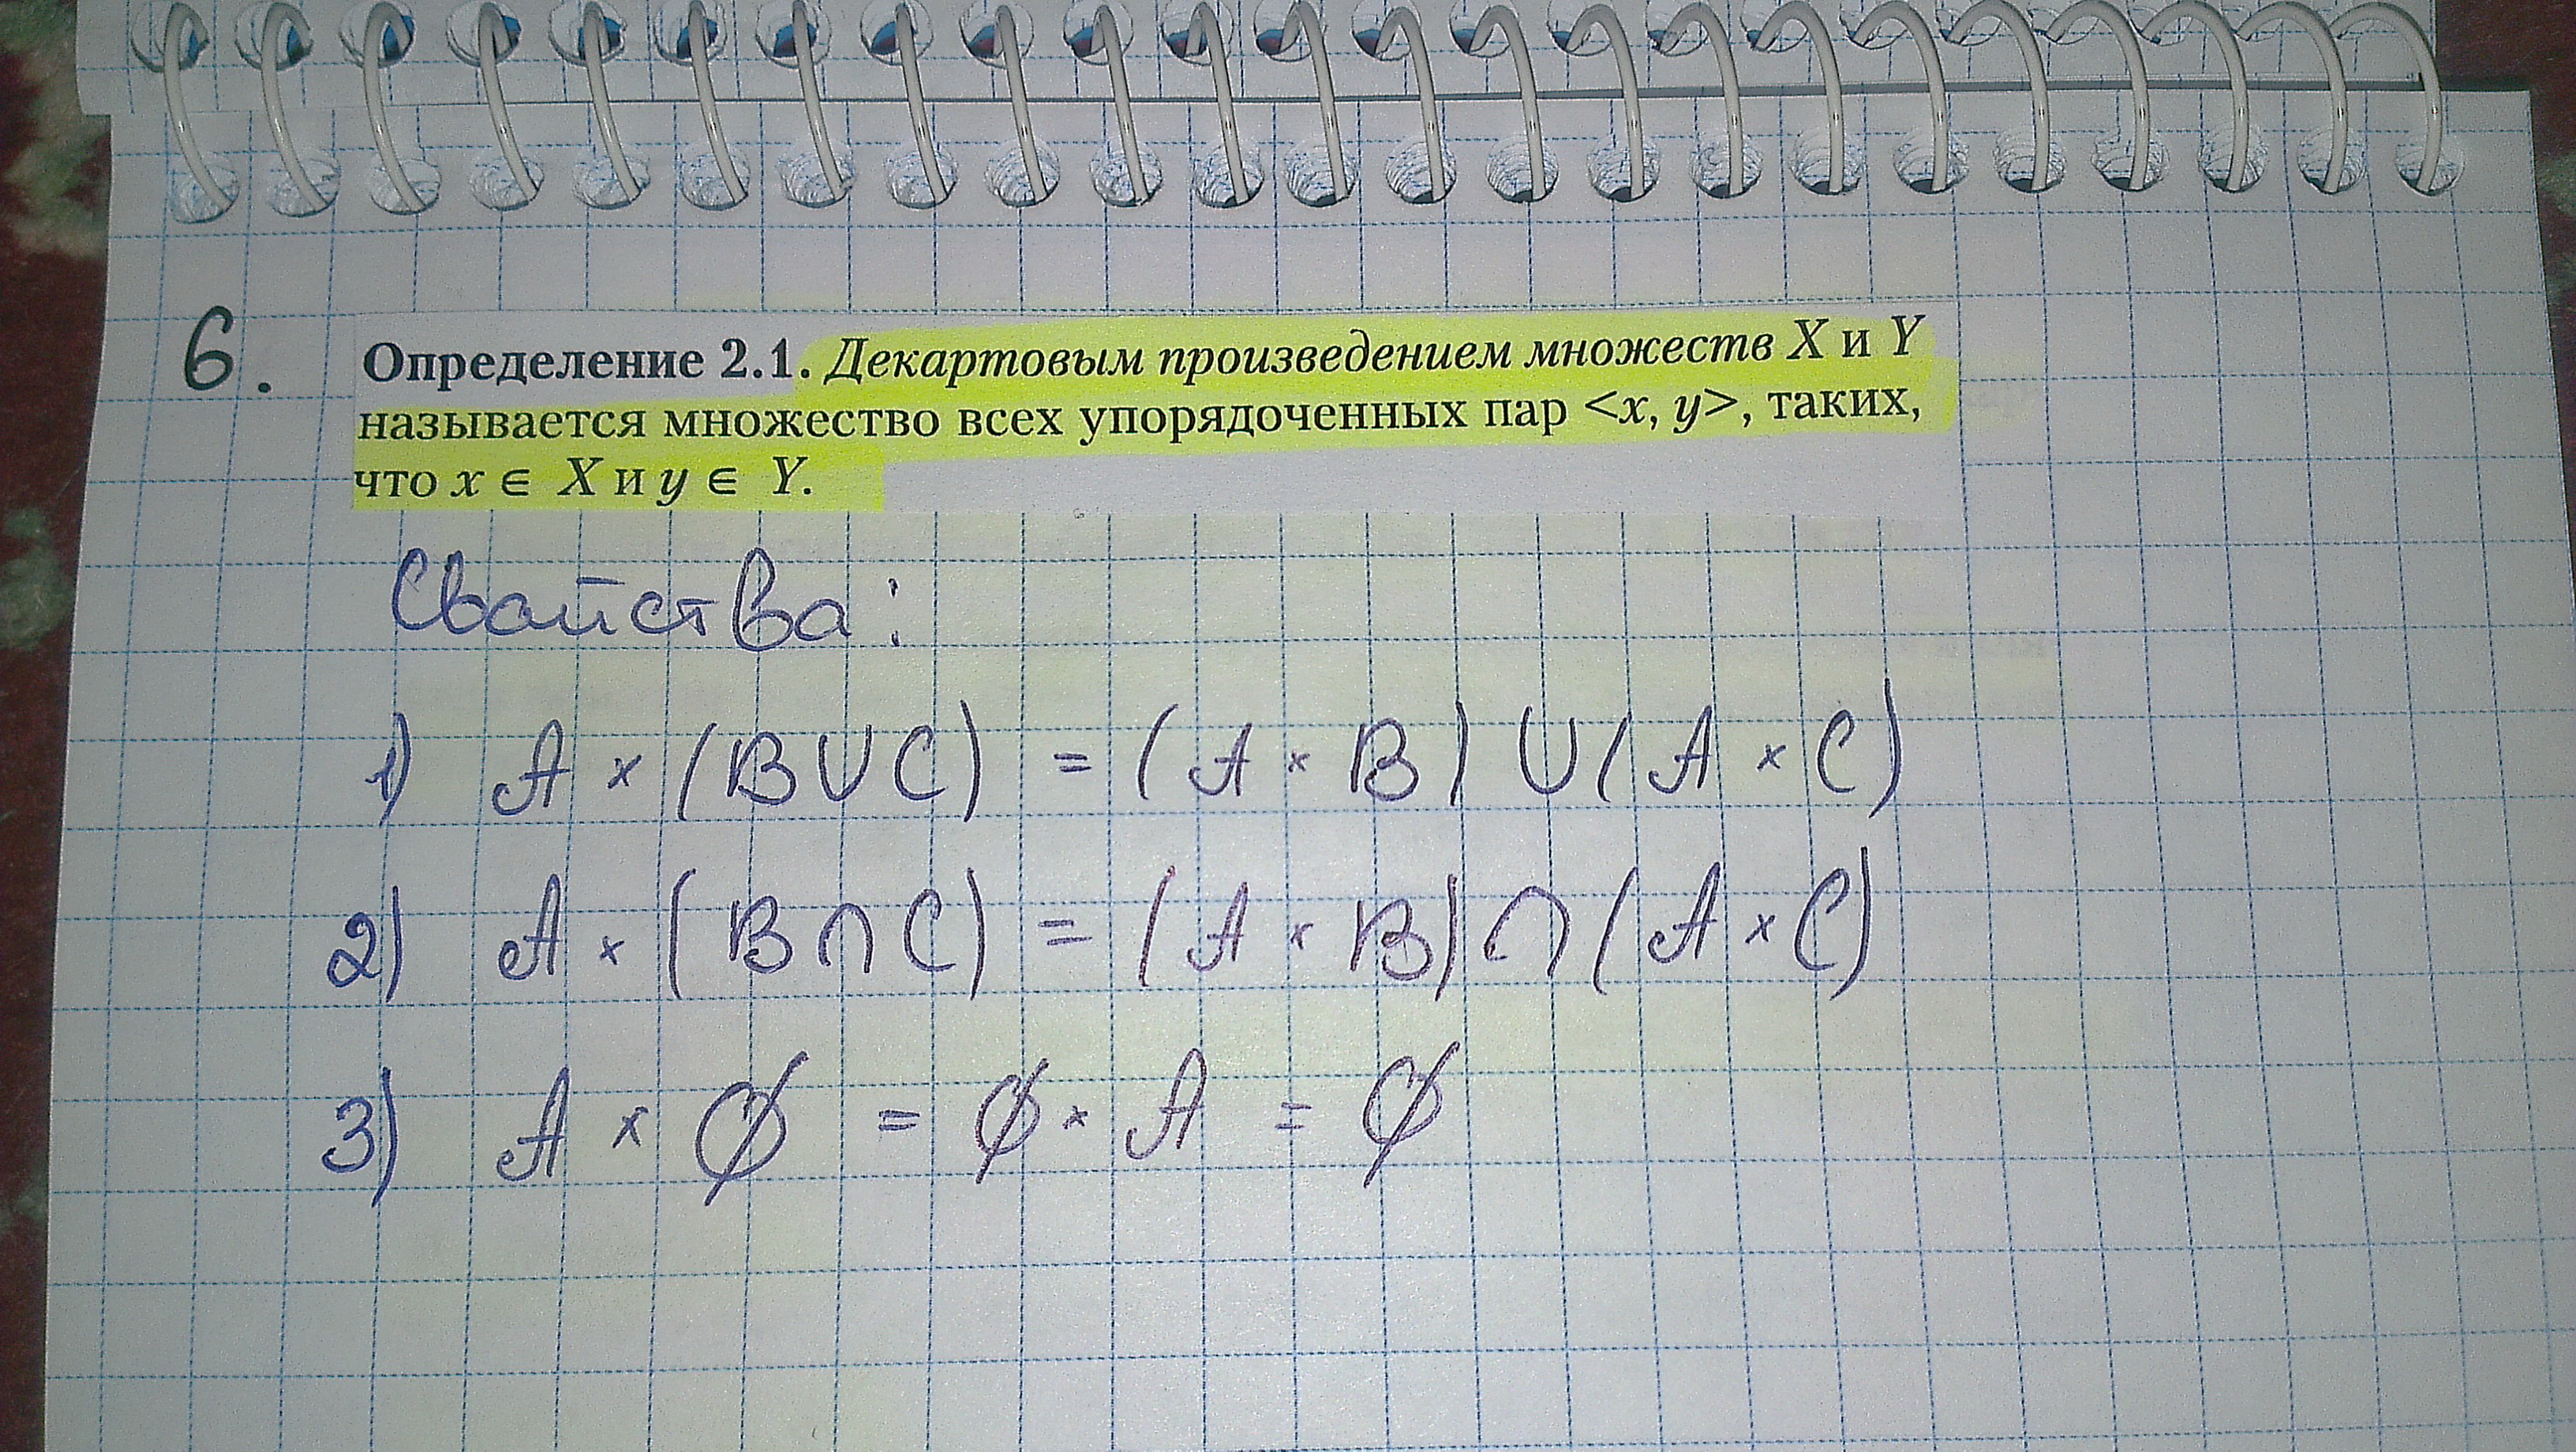 6. Определение 2.1. Декартовым произведением множеств X и Y
называется множество всех упорядоченных пар <x, y>, таких,
что x ∈ X и y ∈ Y.
Свойства:
1) A × (B ∪ C) = (A × B) ∪ (A × C)
2) A × (B ∩ C) = (A × B) ∩ (A × C)
3) A × ∅ = ∅ × A = ∅